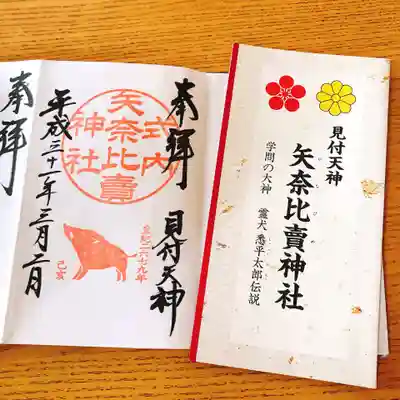 奉拝
見付天神
式内
矢奈比賣
神社
皇紀二六七九年
己亥
平成三十一年三月二日
奉拝
見付天神
矢奈比賣神社
学問の大神 霊犬 悉平太郎伝説